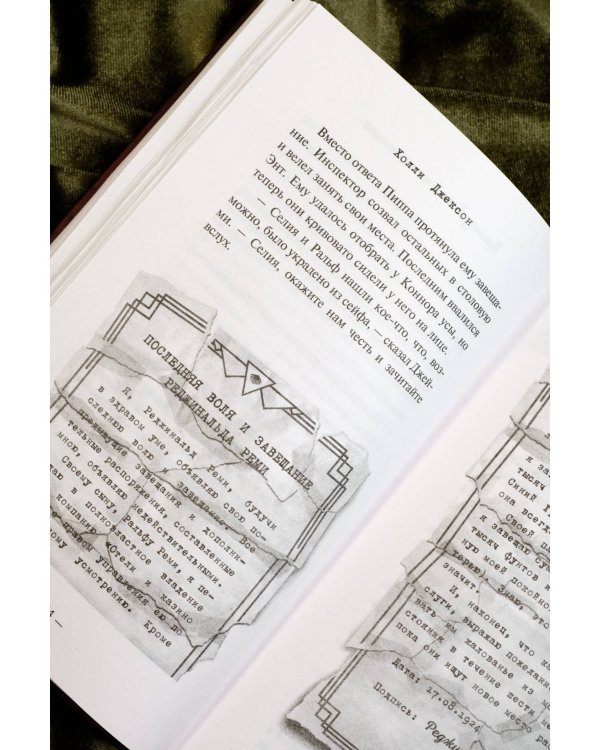 Холли Джексон
Вместо ответа Пиппа протянула ему завеща-
ние. Инспектор созвал остальных в столовую
и велел занять свои места. Последним ввалился
Энт. Ему удалось отобрать у Коннора усы, но
теперь они кривовато сидели у него на лице.
— Селия и Ральф нашли кое-что, что, воз-
можно, было украдено из сейфа, — сказал Джей-
ми. — Селия, окажите нам честь и зачитайте
вслух.
ПОСЛЕДНЯЯ ВОЛЯ И ЗАВЕЩАНИЕ
РЕДЖИНАЛЬДА РЕМИ
Я, Реджинальд Реми, будучи
в здравом уме, объявляю свою по-
следнюю волю и завещание. Все
предыдущие завещания и дополни-
тельные распоряжения, составленные
мною, объявляю недействительными.
Своему сыну, Ральфу Реми, я
в полное частное владение
компанию «Отели и казино
правом управления ею по
усмотрению. Кроме
я за
тысяч
Синий
она всегд
Своей
я завещаю
тысяч фунтов и
ную моей покойной
терью. Знаю, это
значит
И, наконец, что ка
слуги, выражаю пожелание
вать их жалованье из
стояния в течение шести ме
пока они ищут новое место ра
Дата: 17.08.1924
Подпись: